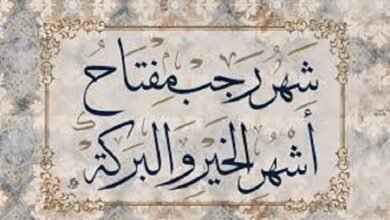 شَهْرُ رَجَب مِفْتَاحُ
أَشْهُر الخَيْرِ وَالبَرَكَة